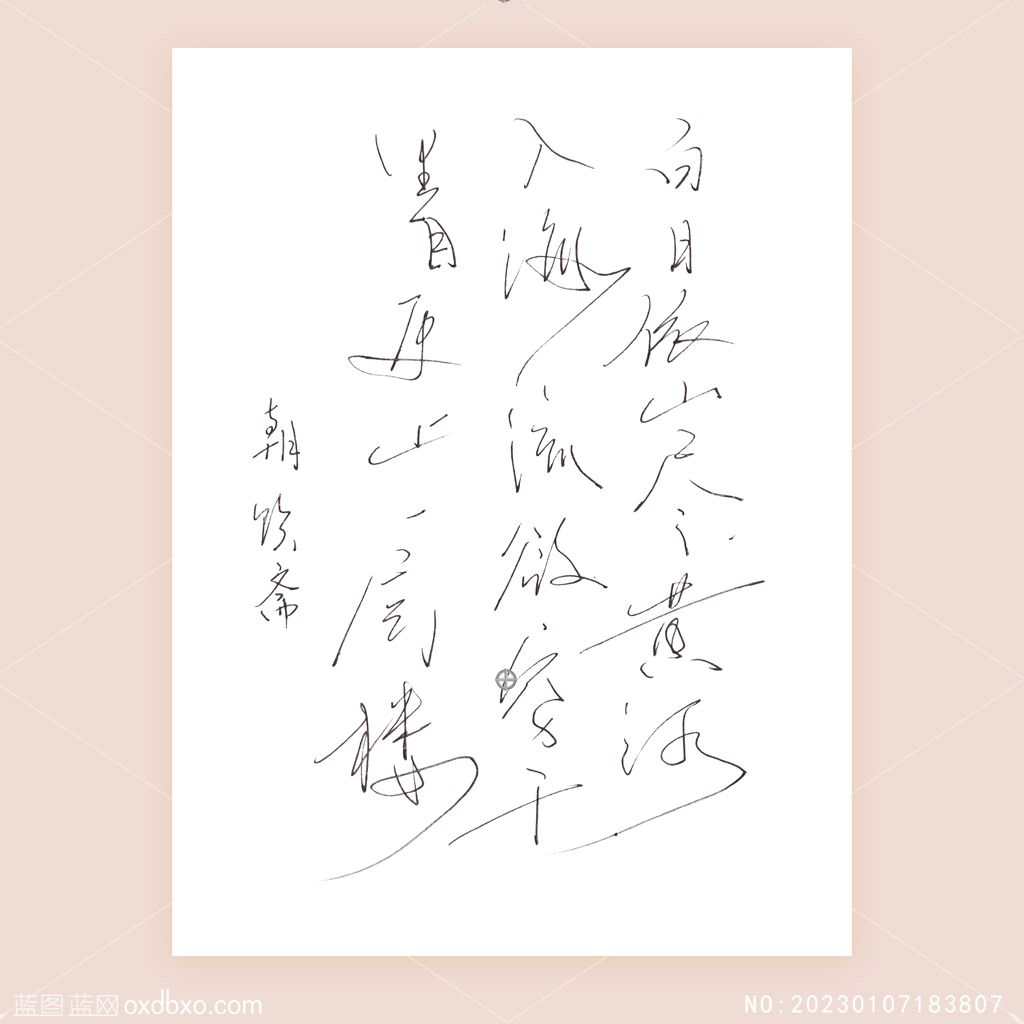 白日依山尽黄河
入海流欲穷千
里目更上一层楼
朝斋
蓝图 蓝网 oxdbxo.com
NO:20230107183807